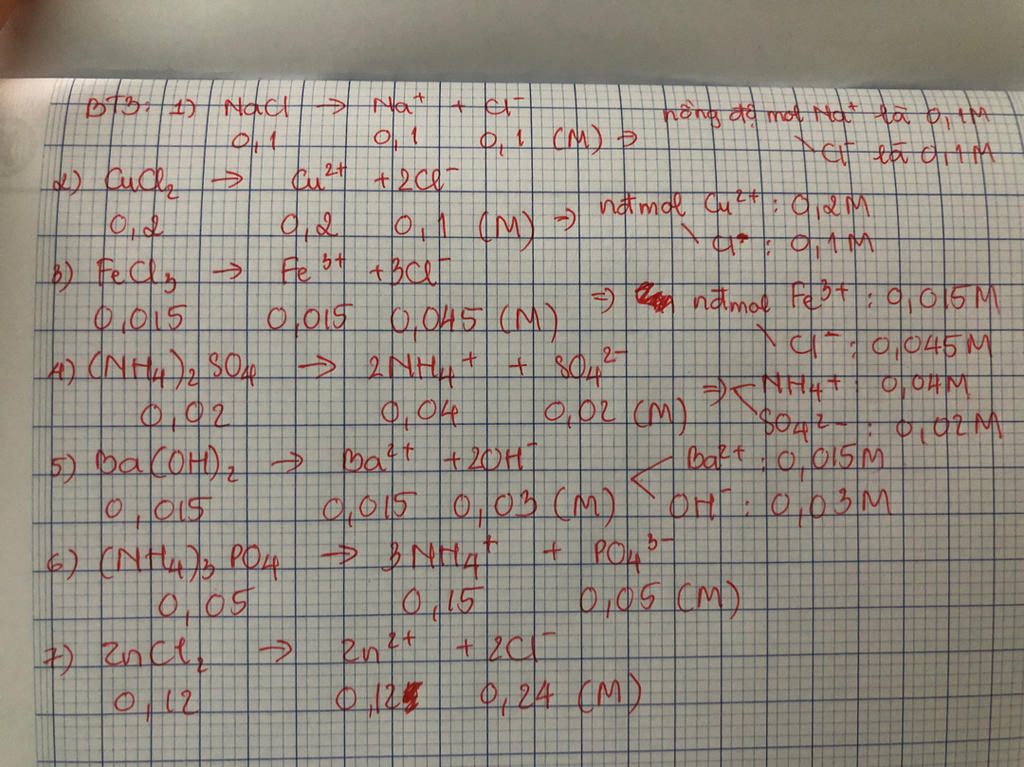 BT3: 1) NaCl → Na⁺ + Cl⁻ nồng độ mol Na⁺ là 0,1M
0,1 0,1 0,1 (M) ⇒ Cl⁻ là 0,1M
2) CuCl₂ → Cu²⁺ + 2Cl⁻
0,2 0,2 0,1 (M) ⇒ nđ mol Cu²⁺ : 0,2M
Cl⁻ : 0,1M
3) FeCl₃ → Fe³⁺ + 3Cl⁻
0,015 0,015 0,045 (M) ⇒ nđ mol Fe³⁺ : 0,015M
Cl⁻ : 0,045M
4) (NH₄)₂SO₄ → 2NH₄⁺ + SO₄²⁻
0,02 0,04 0,02 (M) ⇒ NH₄⁺ : 0,04M
SO₄²⁻ : 0,02M
5) Ba(OH)₂ → Ba²⁺ + 2OH⁻ Ba²⁺ : 0,015M
0,015 0,015 0,03 (M) OH⁻ : 0,03M
6) (NH₄)₃PO₄ → 3NH₄⁺ + PO₄³⁻
0,05 0,15 0,05 (M)
7) ZnCl₂ → Zn²⁺ + 2Cl⁻
0,12 0,12 0,24 (M)